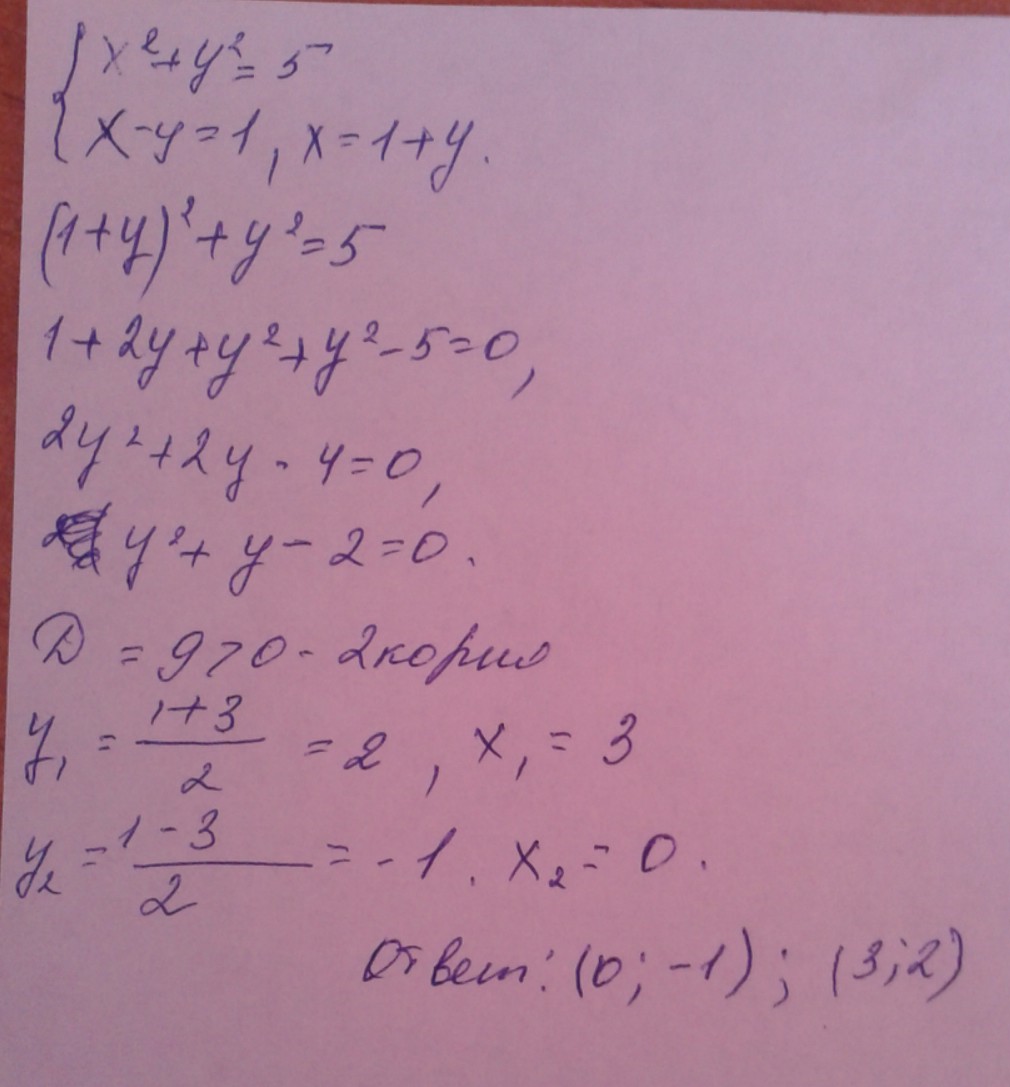 { x² + y² = 5
x - y = 1, x = 1 + y.
(1 + y)² + y² = 5
1 + 2y + y² + y² - 5 = 0,
2y² + 2y - 4 = 0,
y² + y - 2 = 0.
D = 9 > 0 - 2 корня
y₁ = (1 + 3) / 2 = 2, x₁ = 3
y₂ = (1 - 3) / 2 = -1. x₂ = 0.
Ответ: (0; -1); (3; 2)